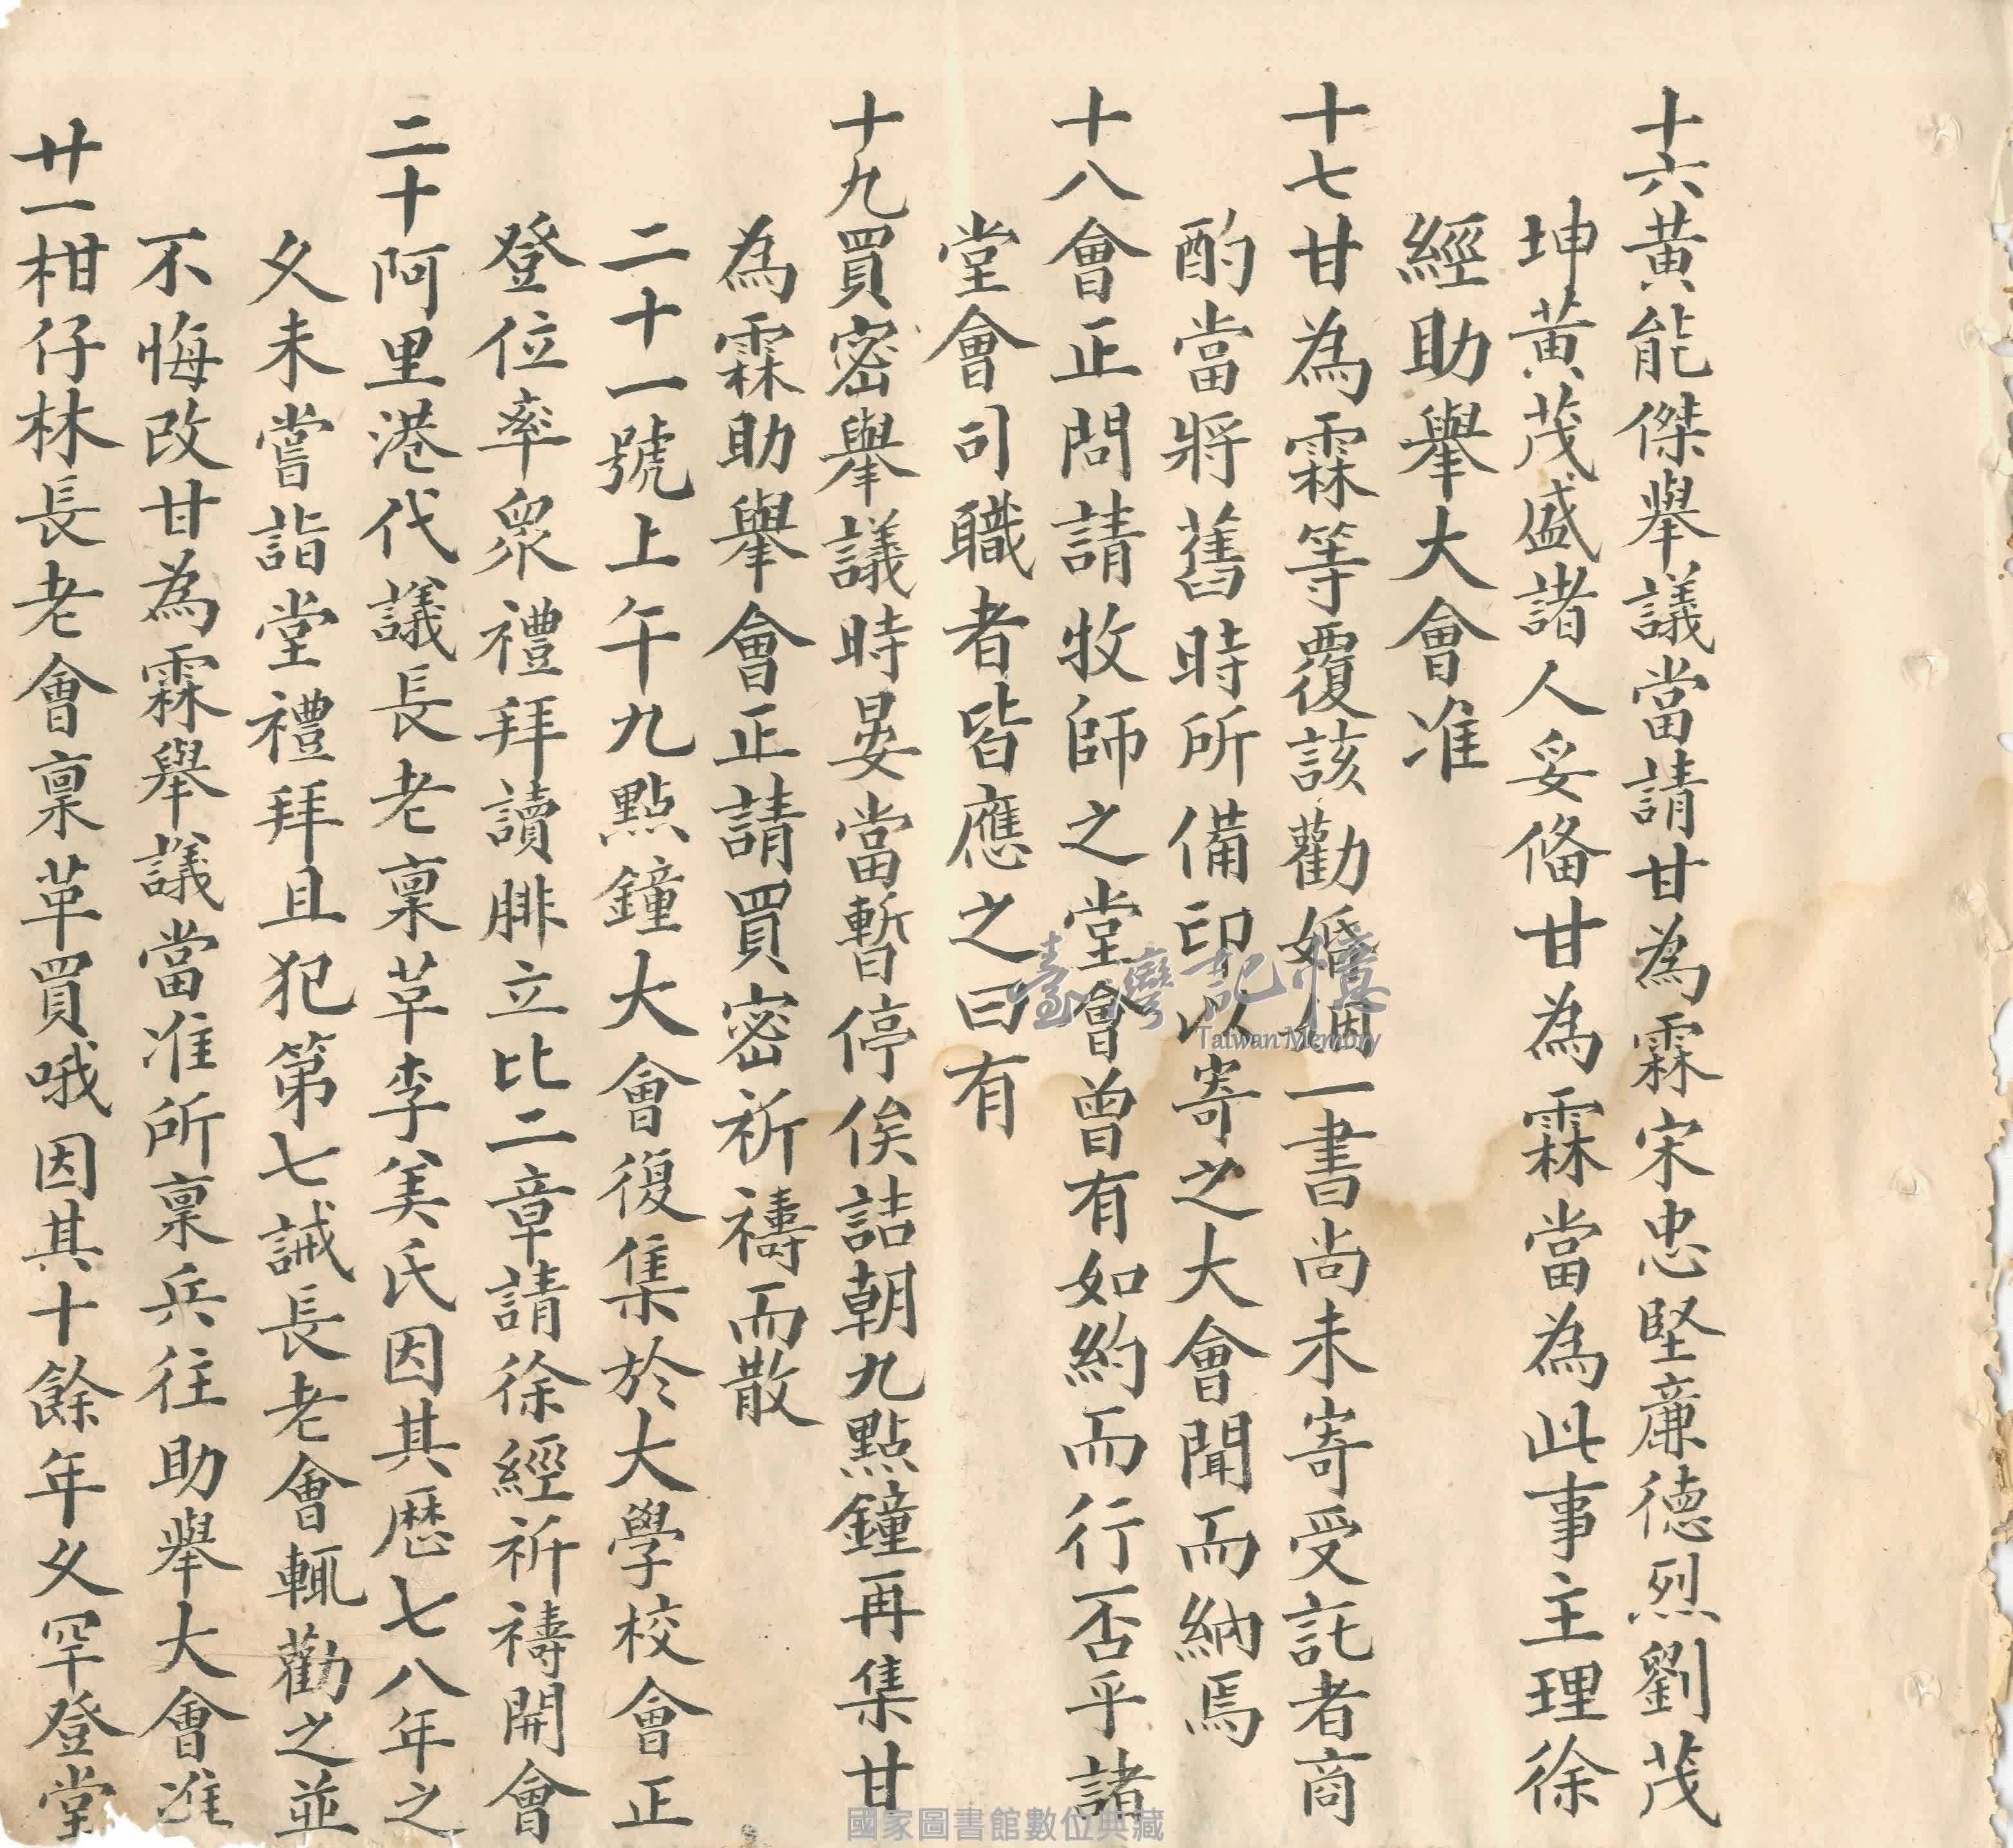 十六黃能傑舉議當請甘為霖宋忠堅廉德烈劉茂
坤黃茂盛諸人妥俻甘為霖當為此事主理徐
經助舉大會准
十七甘為霖等覆該勸婚姻一書尚未寄受託者商
酌當將舊時所備印以寄之大會聞而納焉
十八會正問請牧師之堂會曾有如約而行否乎諸
堂會司職者皆應之曰有
十九買密舉議時晏當暫停俟詰朝九點鐘再集甘
為霖助舉會正請買密祈禱而散
二十一號上午九點鐘大會復集於大學校會正
登位率眾禮拜讀腓立比二章請徐經祈禱開會
二十阿里港代議長老稟草李美氏因其歷七八年之
久未嘗詣堂禮拜且犯第七誡長老會輒勸之並
不悔改甘為霖舉議當准所稟兵往助舉大會准
廿一柑仔林長老會稟革買哦因其十餘年久罕登堂
臺灣記憶
Taiwan Memory
國家圖書館數位典藏